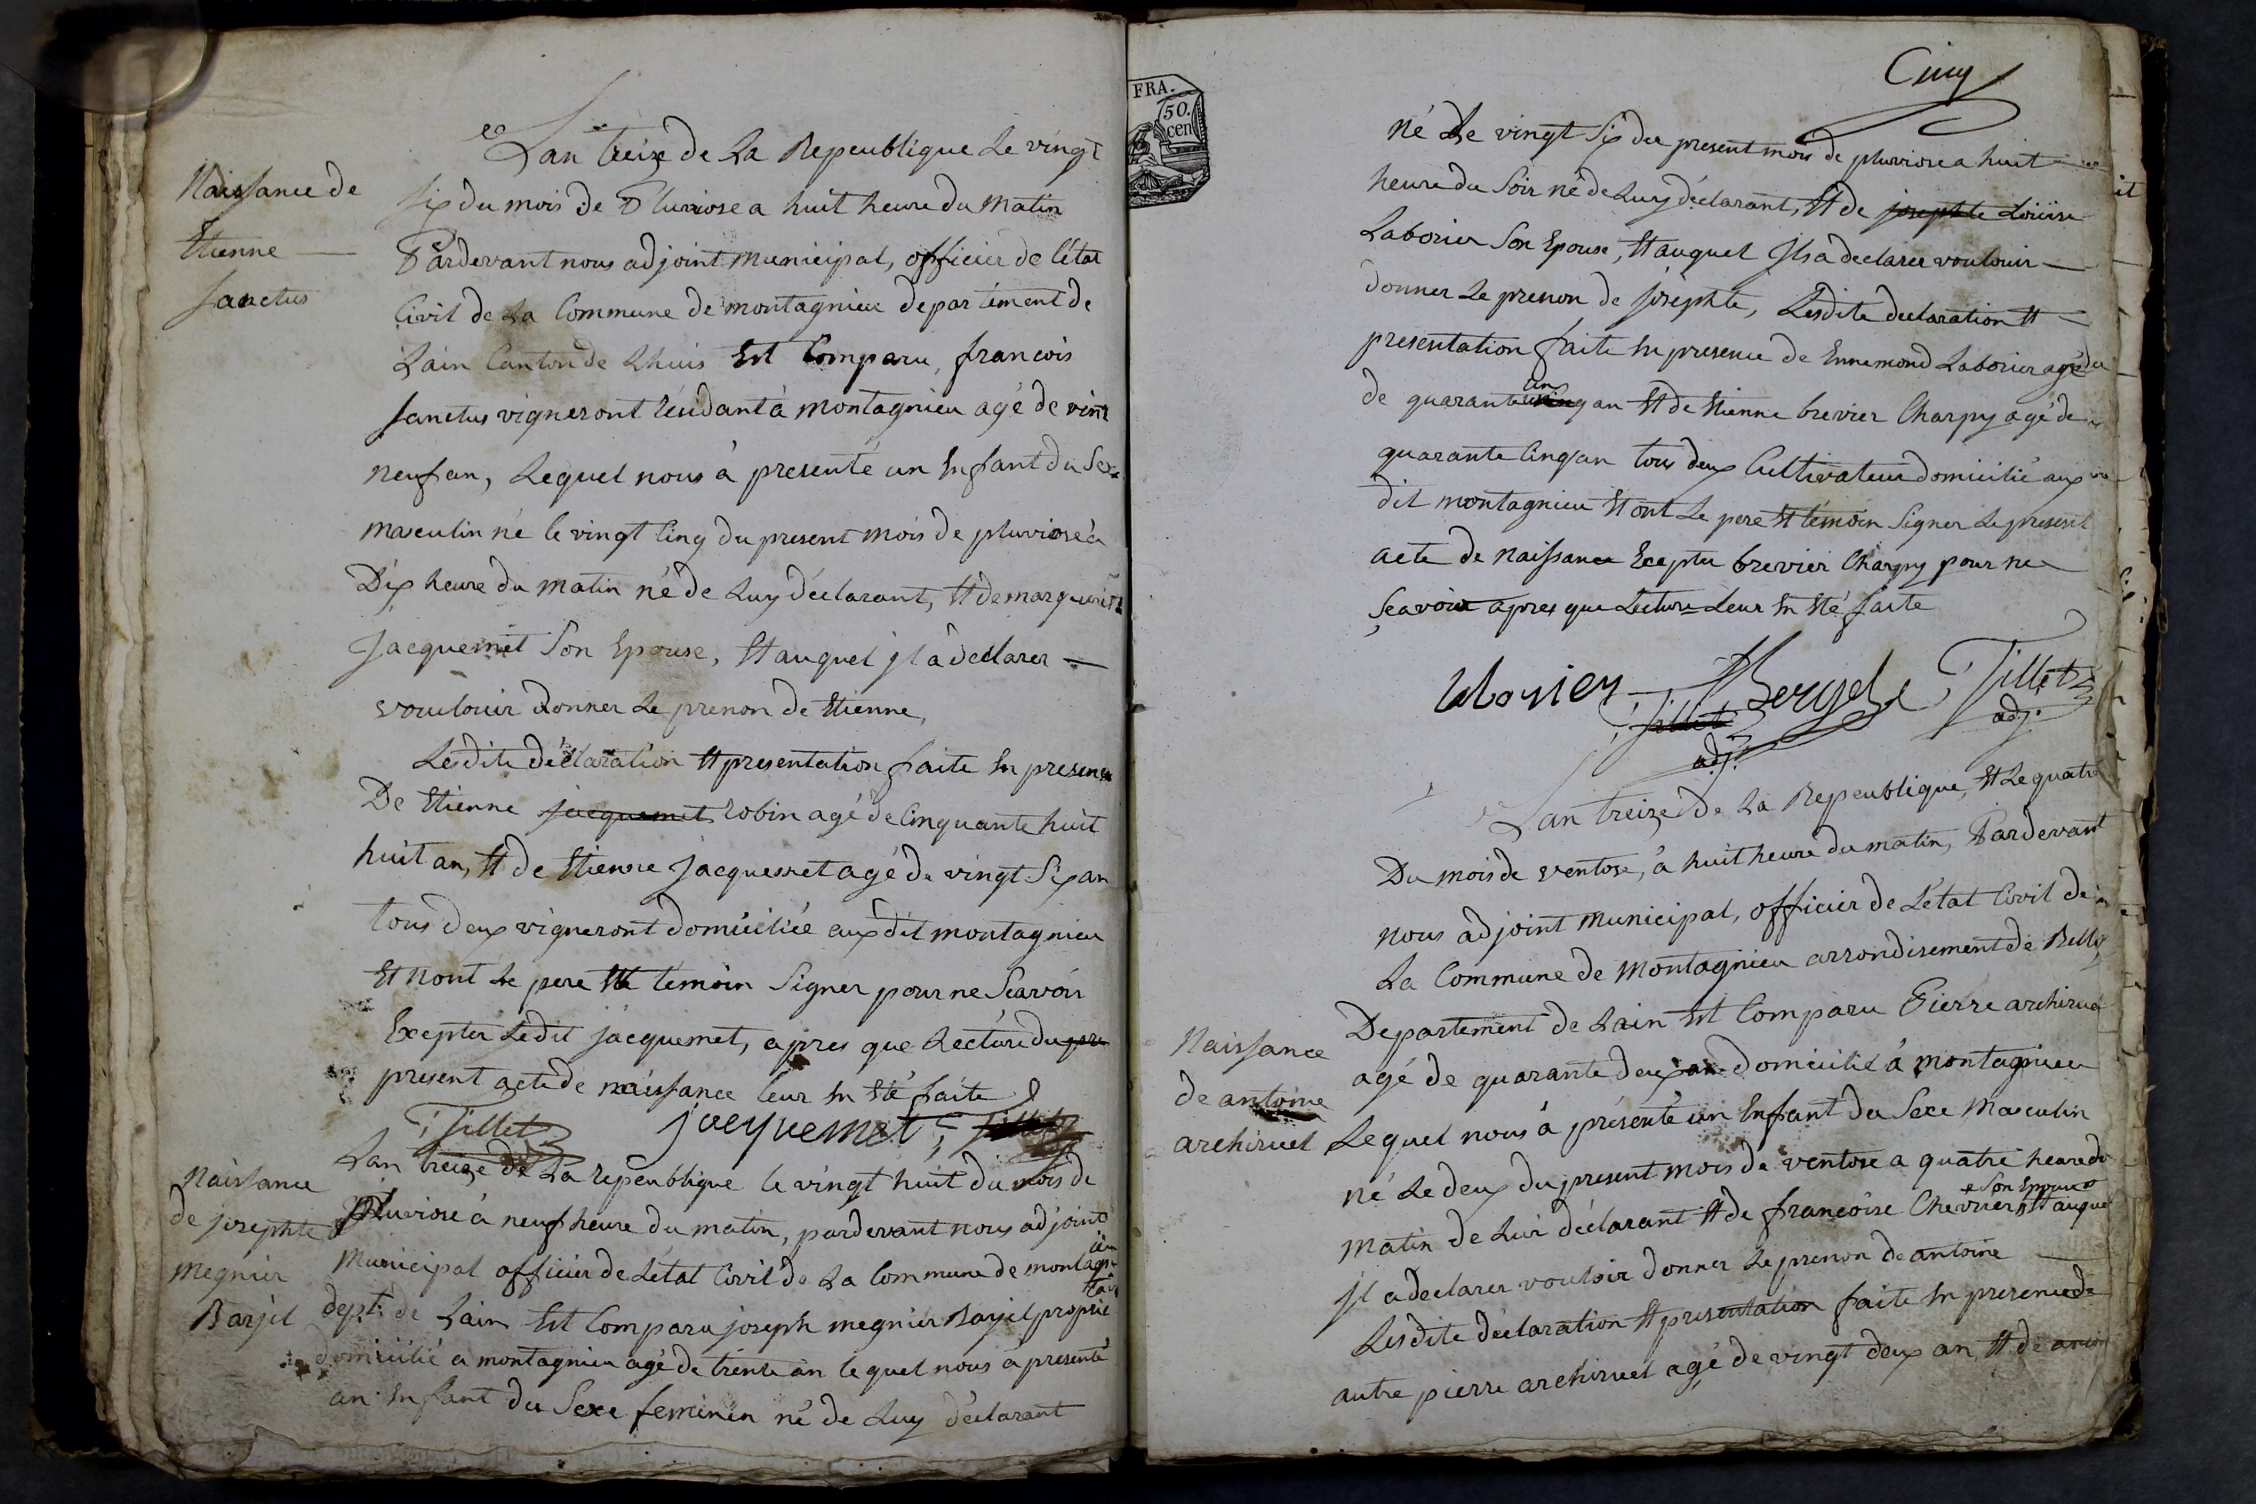 Naissance de
Etienne
Sanctus
Lan treize de La Repeublique Le vingt
six du mois de Pluviose a huit heure du Matin
Pardevant nous adjoint Municipal, officier de l'état
Civil de La Commune de montagnieu departement de
Lain Canton de Lhuis Est Comparu, francois
Sanctus vigneront résidant à Montagnieu agé de vint
neuf an, Lequel nous à presenté un Enfant du Sexe
masculin né le vingt Cinq du present mois de pluviose à
Dix heure du Matin né de Luy déclarant, Et de marguerite
Jacquemet Son Epouse, Et auquel jl a declarer
vouloiur donner Le prenon de Etienne,
Lesdite déclaration Et presentation faite En presence
De Etienne jacquemet robin agé de Cinquante huit
huit an, Et de Etienne Jacquemet agé de vingt Six an
tous deux vigneront domicilié auxdit montagnieu
Et nont Le pere Et témoin Signer pour ne Scavoir
Excepter Ledit jacquemet, apres que Lecture du pre
present acte de naissance leur En Eté faite
Tillet jacquemet Tillet
Naissance
de josephte
Megnier
Barjel
Lan treize de La repeublique le vingt huit du mois de
Pluviose à neuf heure du matin, pardevant nous adjoint
Municipal officier de L'état Civil de La Commune de montagnieu
dept. de Lain Est Comparu joseph megnier Barjel proprietair
domicilié a montagnieu agé de trente an lequel nous à presenté
un Enfant du Sexe feminin né de Luy déclarant
Cinq
FRA.
50.
cen
né Le vingt Six du present mois de pluviose a huit
heure du Soir né de Luy déclarant, Et de josephte Loüise
Laborier Son Epouse, Et auquel Jls a declarer vouloiur
donner Le prenon de josephte, Lesdite declaration Et
presentation faite En presence de Ennemond Laborier agé
de quarante un an Et de Etienne brevier Charpy agé de
quarante Cinq an tous deux Cultivateur domicilié aux
dit montagnieu Et ont Le pere Et témoin Signer Le present
acte de Naissance Ecepter brevier Charpy pour ne
Scavoir apres que Lecture Leur En Eté faite
laborier Bergel Tillet
Tillet adj.
adj.
Lan treize de La Repeublique, Et Le quatre
Du mois de ventose, à huit heure du matin, Pardevant
nous adjoint Municipal, officier de L'état Civil de
La Commune de Montagnieu arrondisement de Belley
Naissance
de antoine
archiruel
Departement de Lain Est Comparu Pierre archiruel
agé de quarante deux an domicilié à montagnieu
Lequel nous à présenté un Enfant du Sexe Masculin
né Le deux du present mois de ventose a quatre heure du
Son Epouse
matin de Lui déclarant Et de francoise Chevrier Et auquel
jl a declarer vouloir donner Le prenon de antoine
Lesdite déclaration Et presentation faite En presence de
autre pierre archiruel agé de vingt deux an, Et de